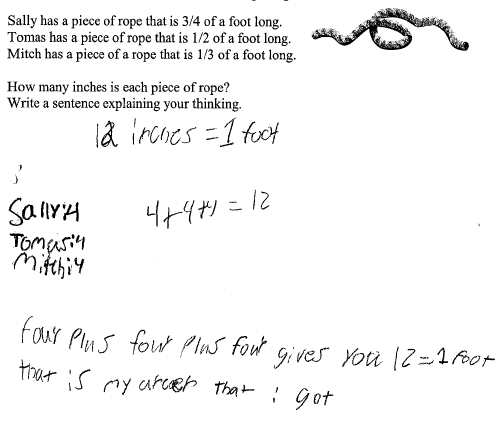 Sally has a piece of rope that is 3/4 of a foot long.
Tomas has a piece of rope that is 1/2 of a foot long.
Mitch has a piece of a rope that is 1/3 of a foot long.
How many inches is each piece of rope?
Write a sentence explaining your thinking.
12 inches = 1 foot
Sally:4
4+4+4 = 12
Tomas:4
Mitch:4
four Plus four Plus four gives you 12=1 foot
that is my that i got